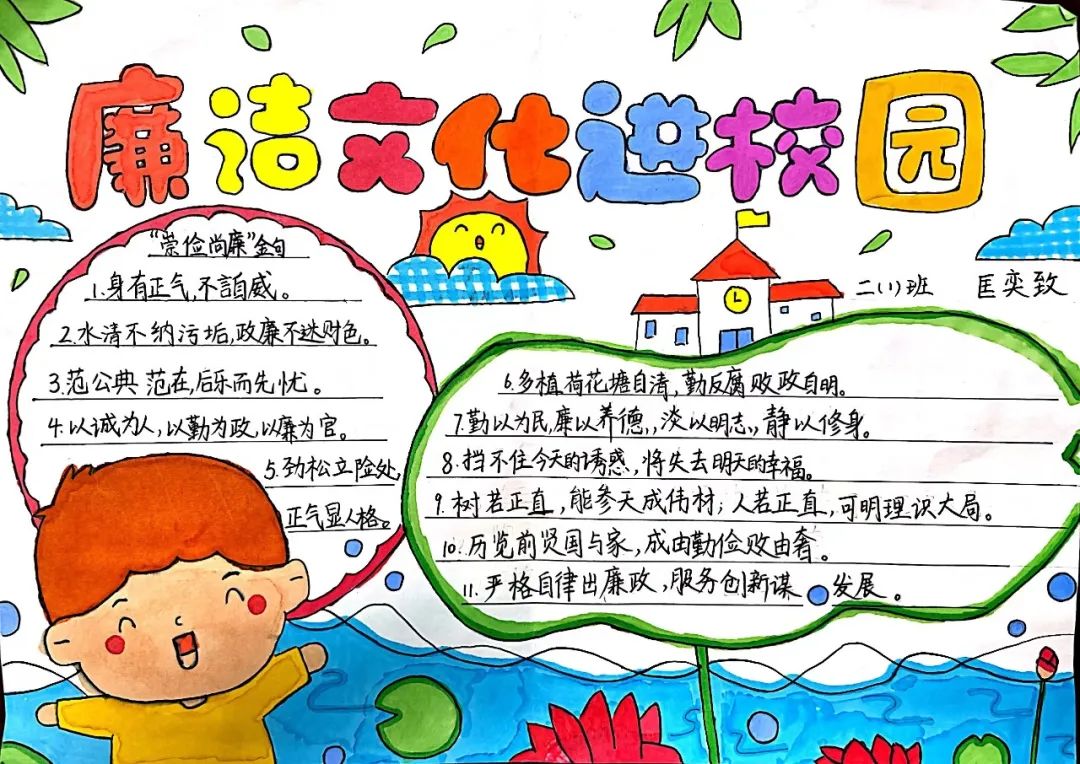 廉洁文化进校园
"崇俭尚廉"金句
1.身有正气,不言自威。
2.水清不纳污垢,政廉不迷财色。
3.范公典范在,后乐而先忧。
4.以诚为人,以勤为政,以廉为官。
5.劲松立险处,
正气显人格。
二(1)班 匡奕致
6.多植荷花塘自清,勤反腐败政自明。
7.勤以为民,廉以养德,,淡以明志,,静以修身。
8.挡不住今天的诱惑,将失去明天的幸福。
9.树若正直,能参天成伟材;人若正直,可明理识大局。
10.历览前贤国与家,成由勤俭败由奢。
11.严格自律出廉政,服务创新谋 发展。